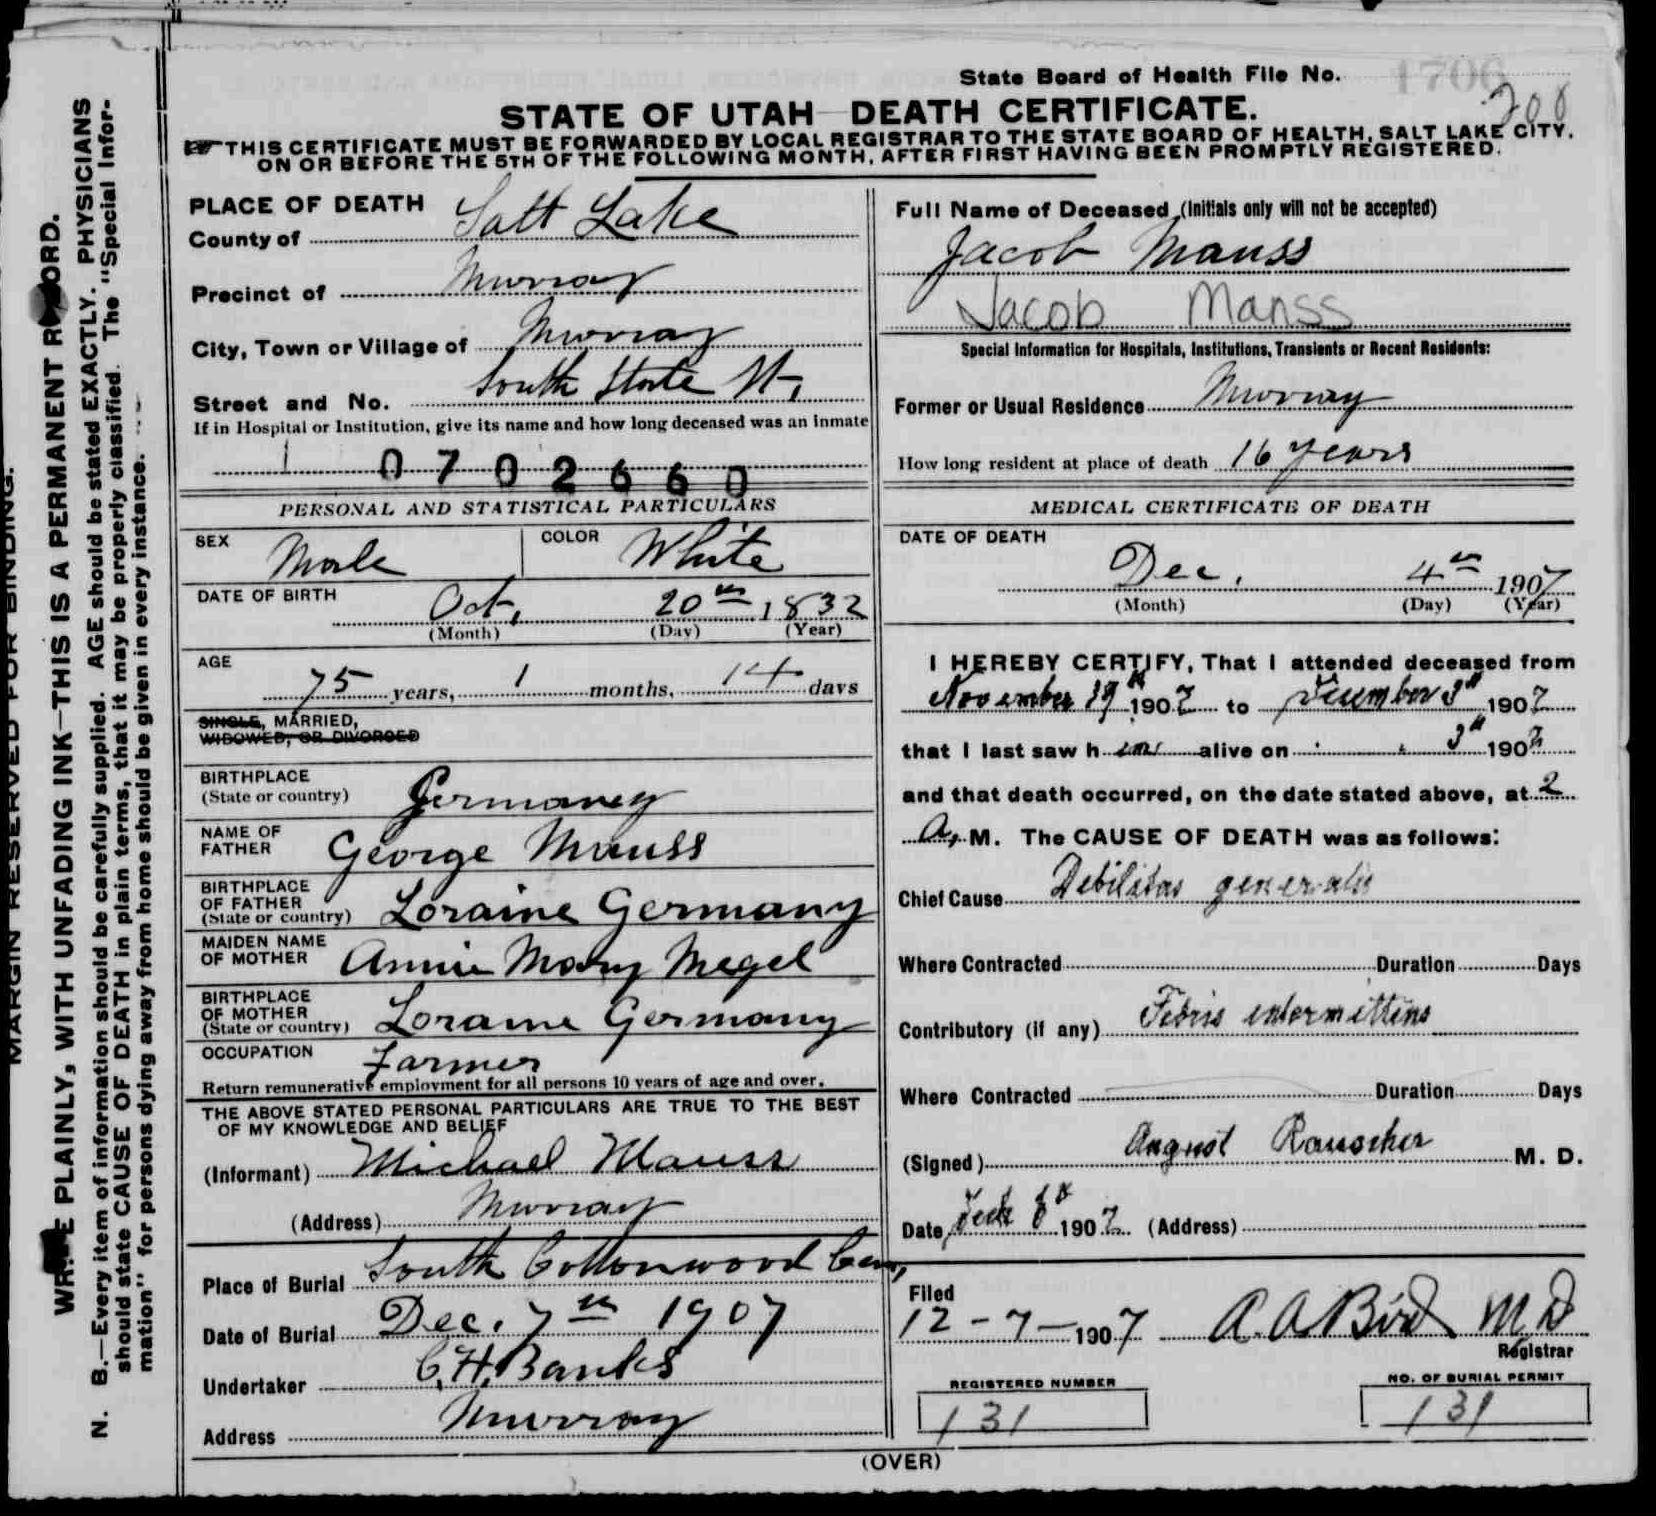 MARGIN RESERVED FOR BINDING.
PLAINLY, WITH UNFADING INK—THIS IS A PERMANENT RECORD.
N. B.—Every item of information should be carefully supplied. AGE should be stated EXACTLY. PHYSICIANS
should state CAUSE OF DEATH in plain terms, that it may be properly classified. The "Special Infor-
mation" for persons dying away from home should be given in every instance.
State Board of Health File No. 1706
208
STATE OF UTAH—DEATH CERTIFICATE.
THIS CERTIFICATE MUST BE FORWARDED BY LOCAL REGISTRAR TO THE STATE BOARD OF HEALTH, SALT LAKE CITY,
ON OR BEFORE THE 5TH OF THE FOLLOWING MONTH, AFTER FIRST HAVING BEEN PROMPTLY REGISTERED.
PLACE OF DEATH
County of Salt Lake
Precinct of Murray
City, Town or Village of Murray
Street and No. South State St,
If in Hospital or Institution, give its name and how long deceased was an inmate
1 0702660
PERSONAL AND STATISTICAL PARTICULARS
SEX Male COLOR White
DATE OF BIRTH Oct, 20th 1832
(Month) (Day) (Year)
AGE 75 years, 1 months, 14 days
SINGLE, MARRIED,
WIDOWED, OR DIVORCED
BIRTHPLACE
(State or country) Germaney
NAME OF
FATHER George Mauss
BIRTHPLACE
OF FATHER
(State or country) Loraine Germany
MAIDEN NAME
OF MOTHER Annie Mary Megel
BIRTHPLACE
OF MOTHER
(State or country) Loraine Germany
OCCUPATION Farmer
Return remunerative employment for all persons 10 years of age and over.
THE ABOVE STATED PERSONAL PARTICULARS ARE TRUE TO THE BEST
OF MY KNOWLEDGE AND BELIEF
(Informant) Michael Mauss
(Address) Murray
Place of Burial South Cottonwood Cem,
Date of Burial Dec. 7th 1907
Undertaker C.H. Banks
Address Murray
Full Name of Deceased (Initials only will not be accepted)
Jacob Mauss
Jacob Manss
Special Information for Hospitals, Institutions, Transients or Recent Residents:
Former or Usual Residence Murray
How long resident at place of death 16 years
MEDICAL CERTIFICATE OF DEATH
DATE OF DEATH
Dec. 4th 1907
(Month) (Day) (Year)
I HEREBY CERTIFY, That I attended deceased from
November 19th 1907 to December 3d 1907
that I last saw him alive on 3d 1907
and that death occurred, on the date stated above, at 2
A, M. The CAUSE OF DEATH was as follows:
Chief Cause Debilitas generalis
Where Contracted Duration Days
Contributory (if any) Febris intermittens
Where Contracted Duration Days
(Signed) August Rauscher M. D.
Date 1907 (Address)
Filed
12-7-1907 A. A. Bird MD
Registrar
REGISTERED NUMBER
131
NO. OF BURIAL PERMIT
131
(OVER)